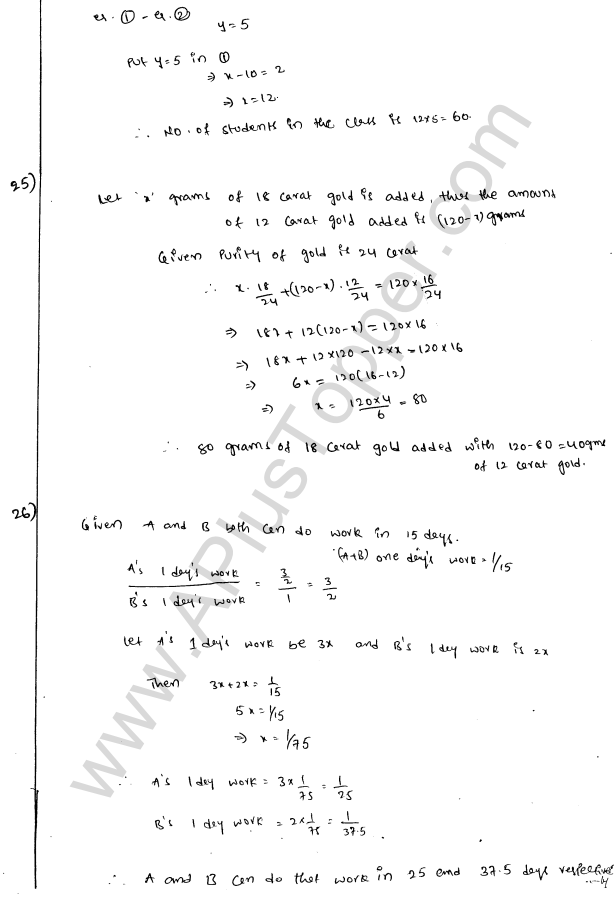 er. ① - er. ②
y=5
Put y=5 in ①
⇒ x-10=2
⇒ x=12.
∴ No. of students in the class is 12×5=60.
25)
Let 'x' grams of 18 carat gold is added, thus the amount
of 12 carat gold added is (120-x) grams
Given Purity of gold is 24 carat
∴ x. 18/24 + (120-x). 12/24 = 120× 16/24
⇒ 18x + 12(120-x) = 120×16
⇒ 18x + 12×120 - 12×x = 120×16
⇒ 6x = 120(16-12)
⇒ x = 120×4/6 = 80
∴ 80 grams of 18 carat gold added with 120-80=40gms
of 12 carat gold.
26)
Given A and B both can do work in 15 days.
(A+B) one day's work = 1/15
A's 1 day's work / B's 1 day's work = 3/2 / 1 = 3/2
Let A's 1 day's work be 3x and B's 1 day work is 2x
Then 3x+2x= 1/15
5x=1/15
⇒ x=1/75
∴ A's 1 day work = 3× 1/75 = 1/25
B's 1 day work = 2× 1/75 = 1/37.5
∴ A and B can do that work in 25 and 37.5 days respectively
www.APlusTopper.com